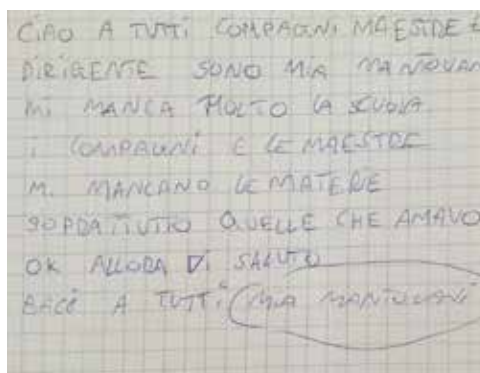 CIAO A TUTTI COMPAGNI MAESTRE E
DIRIGENTE SONO MIA MANTOVAN
MI MANCA MOLTO LA SCUOLA
I COMPAGNI E LE MAESTRE
MI MANCANO LE MATERIE
SOPRATTUTTO QUELLE CHE AMAVO
OK ALLORA VI SALUTO
BACI A TUTTI MIA MANTOVANI